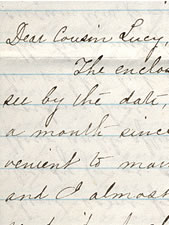 Dear Cousin Lucy,
The enclos
see by the date,
a month since
venient to mov
and I almost